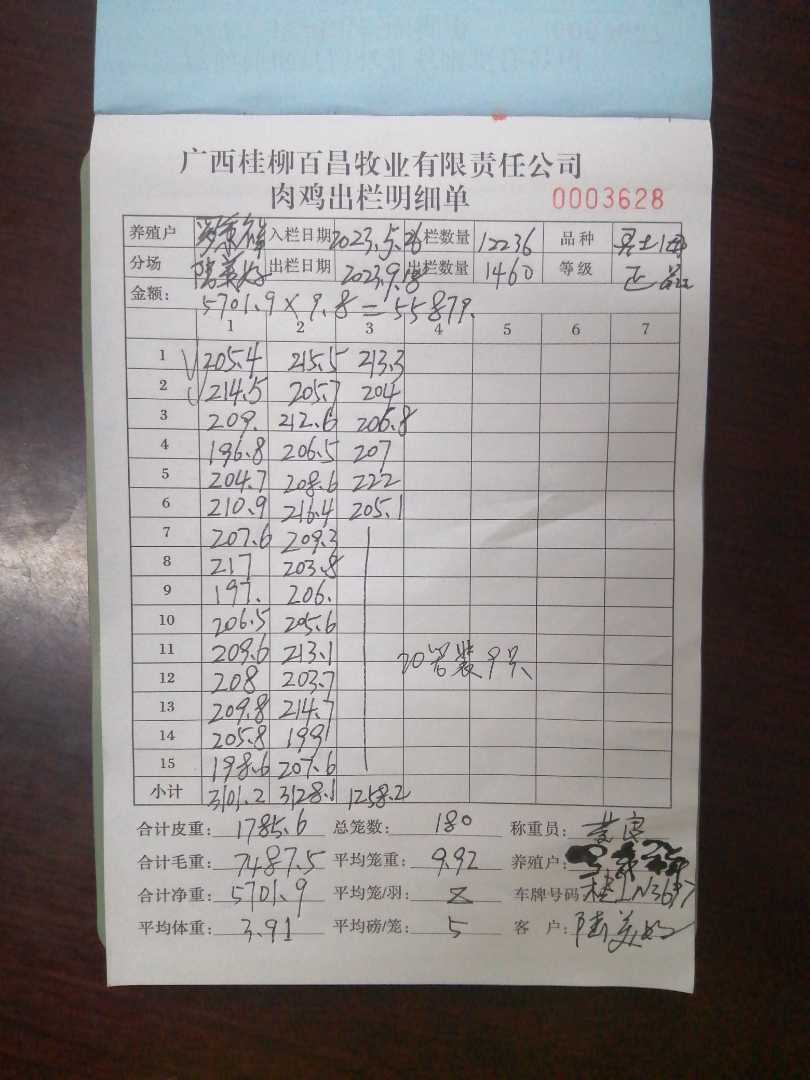 广西桂柳百昌牧业有限责任公司
肉鸡出栏明细单 0003628
养殖户 入栏日期 2023.5.26 栏数量 12236 品种
分场 陆美好 出栏日期 2023.9.18 出栏数量 1460 等级 正品
金额: 5701.9 × 9.8 = 55879.
1 2 3 4 5 6 7
1 205.4 215.5 213.3
2 214.5 205.7 204
3 209. 212.6 206.8
4 196.8 206.5 207
5 204.7 208.6 222
6 210.9 216.4 205.1
7 207.6 209.3
8 217 203.8
9 197. 206.
10 206.5 205.6
11 209.6 213.1 20笼装9只
12 208 203.7
13 209.8 214.7
14 205.8 199
15 198.6 207.6
小计 3101.2 3128.1 1258.2
合计皮重: 1785.6 总笼数: 180 称重员:
合计毛重: 7487.5 平均笼重: 9.92 养殖户:
合计净重: 5701.9 平均笼/羽: 8 车牌号码
平均体重: 3.91 平均磅/笼: 5 客户: 陆美好